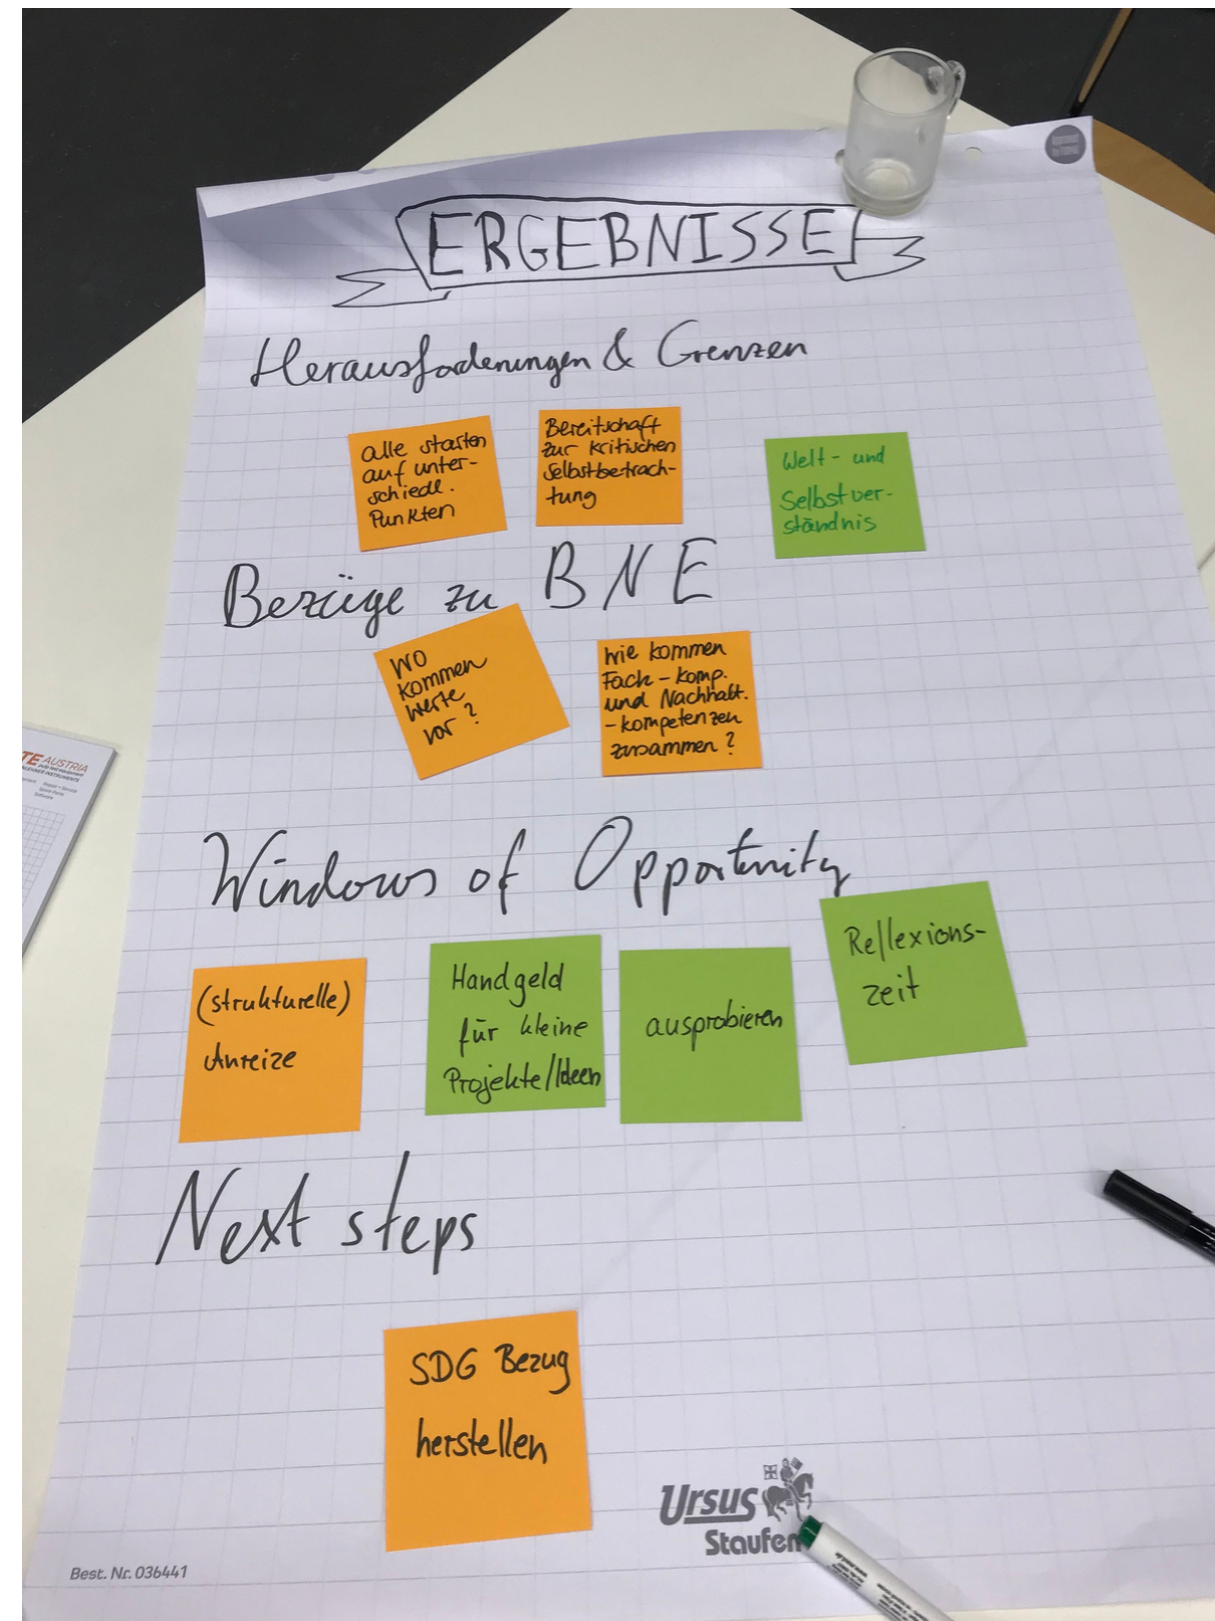 ERGEBNISSE
Herausforderungen & Grenzen
alle starten
auf unter-
schiedl.
Punkten
Bereitschaft
zur kritischen
Selbstbetrach-
tung
Welt- und
Selbstver-
ständnis
Bezüge zu BNE
WO
kommen
Werte
vor?
Wie kommen
Fach-komp.
und Nachhalt.
-kompetenzen
zusammen?
Windows of Opportunity
(strukturelle)
Anreize
Handgeld
für kleine
Projekte/Ideen
ausprobieren
Reflexions-
zeit
Next steps
SDG Bezug
herstellen
Ursus
Staufen
Best. Nr. 036441
TE AUSTRIA